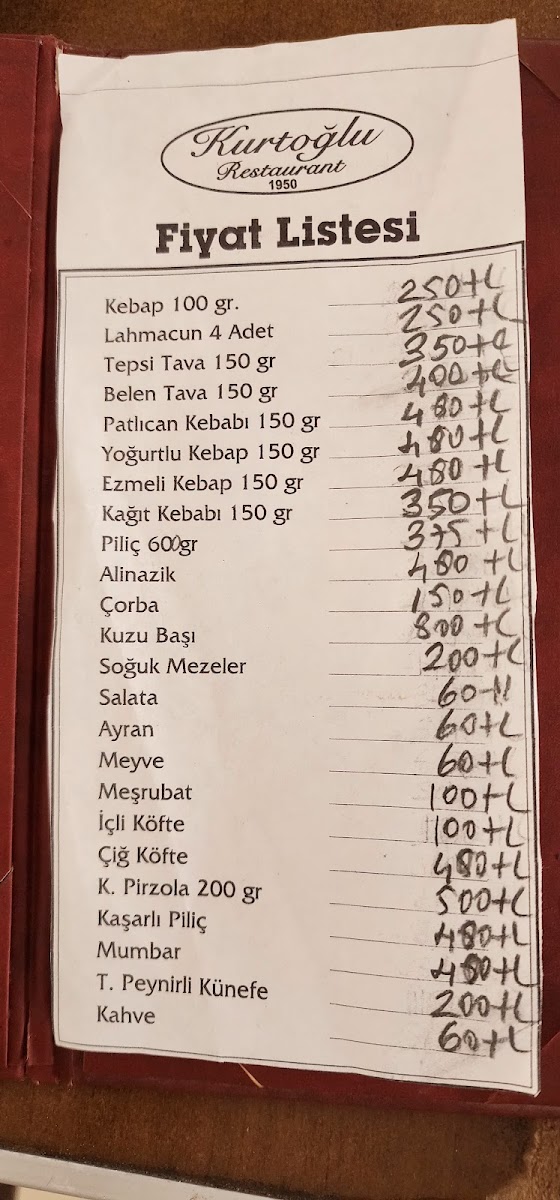 Kurtoğlu
Restaurant
1950
Fiyat Listesi
Kebap 100 gr. 250tL
Lahmacun 4 Adet 250tL
Tepsi Tava 150 gr 350tL
Belen Tava 150 gr 400tL
Patlıcan Kebabı 150 gr 480tL
Yoğurtlu Kebap 150 gr 480tL
Ezmeli Kebap 150 gr 480tL
Kağıt Kebabı 150 gr 350tL
Piliç 600gr 375tL
Alinazik 480tL
Çorba 150tL
Kuzu Başı 800tL
Soğuk Mezeler 200tL
Salata 60tL
Ayran 60tL
Meyve 60tL
Meşrubat 100tL
İçli Köfte 100tL
Çiğ Köfte 480tL
K. Pirzola 200 gr 500tL
Kaşarlı Piliç 480tL
Mumbar 480tL
T. Peynirli Künefe 200tL
Kahve 60tL